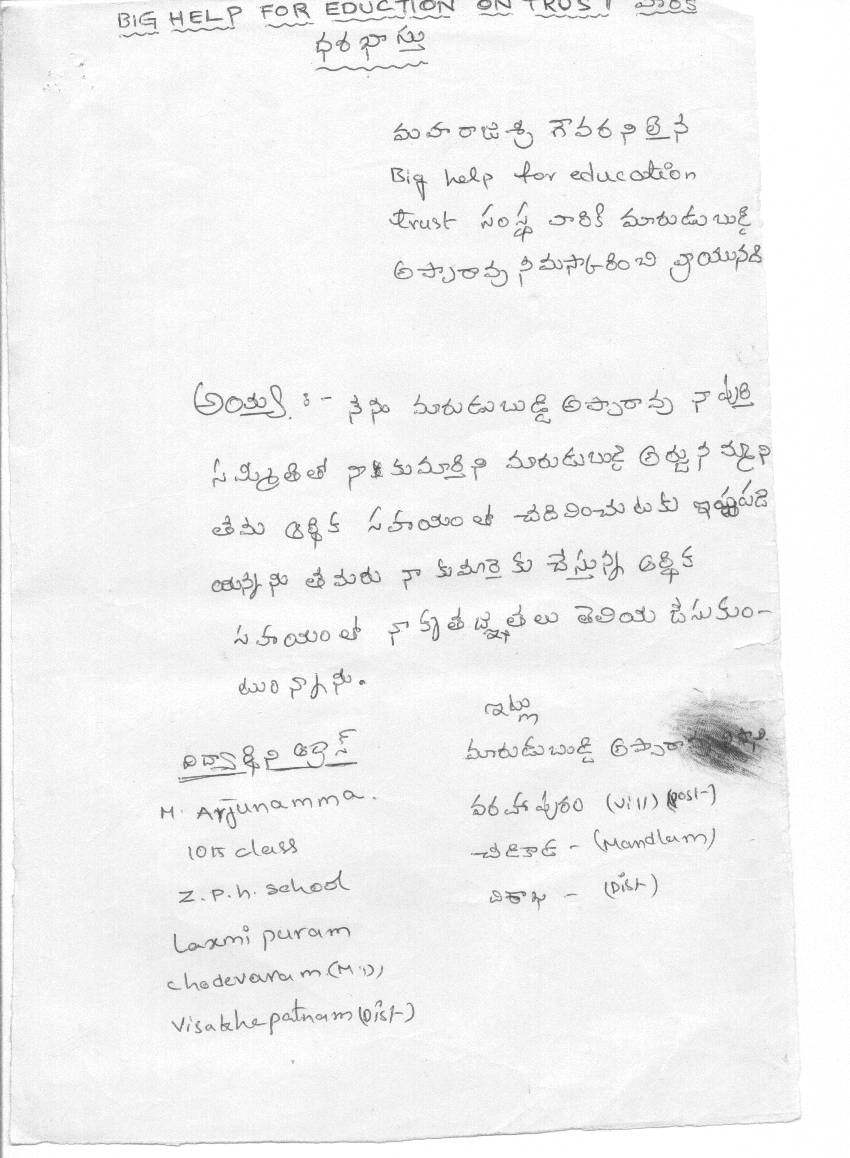 BIG HELP FOR EDUCTION ON TRUST వారికి
ధరఖాస్తు
మహారాజశ్రీ గౌవరనీలైన
Big help for education
trust సంస్థ వారికి మారుడుబుడ్డి
అప్పారావు నమస్కరించి వ్రాయునది
అయ్యా :- నేను మారుడుబుడ్డి అప్పారావు నా పుర్తి
సమ్మతితో నా కుమార్తెని మారుడుబుడ్డి అర్జునమ్మని
తేమ ఆర్థిక సహాయంతో చదివించుటకు ఇష్టపడి
యున్నను తేమరు నా కుమార్తెకు చేస్తున్న ఆర్థిక
సహాయంతో నా కృతజ్ఞతలు తెలియ జేసుకుం-
టున్నాను.
ఇట్లు
విద్యార్థిని అడ్రస్
మారుడుబుడ్డి అప్పారావు
M. Arjunamma.
వరహాపురం (vill) (post-)
10th class
చీడికాడ - (Mandlam)
Z.P.h. school
విశాఖ - (Dist)
Laxmi puram
chodevaram (M.D)
Visakhepatnam (Dist-)